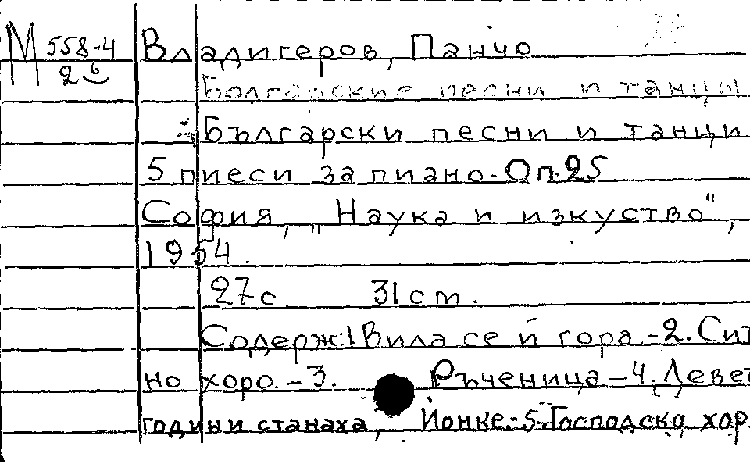 М 558-4 Владигеров, Панчо
2б
Болгарские песни и танцы
Български песни и танци
5 пиеси за пиано. Оп. 25
София, "Наука и изкуство",
1954.
27 с. 31 cm.
Содерж: 1 Вила се й гора - 2. Сит
но хоро - 3. Ръченица - 4. Девет
години станаха, Йонке.-5. Господско хор